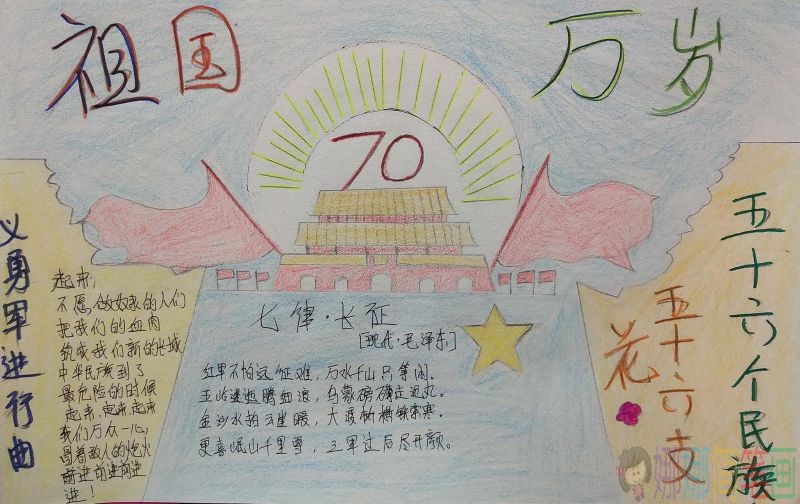 祖国 万岁
70
义勇军进行曲
起来，
不愿做奴隶的人们
把我们的血肉
筑成我们新的长城
中华民族到了
最危险的时候
起来，起来，起来
我们万众一心，
冒着敌人的炮火
前进前进前进
进！
七律·长征
[现代·毛泽东]
红军不怕远征难，万水千山只等闲。
五岭逶迤腾细浪，乌蒙磅礴走泥丸。
金沙水拍云崖暖，大渡桥横铁索寒。
更喜岷山千里雪，三军过后尽开颜。
五十六个民族
五十六支
花
娜娜简笔画